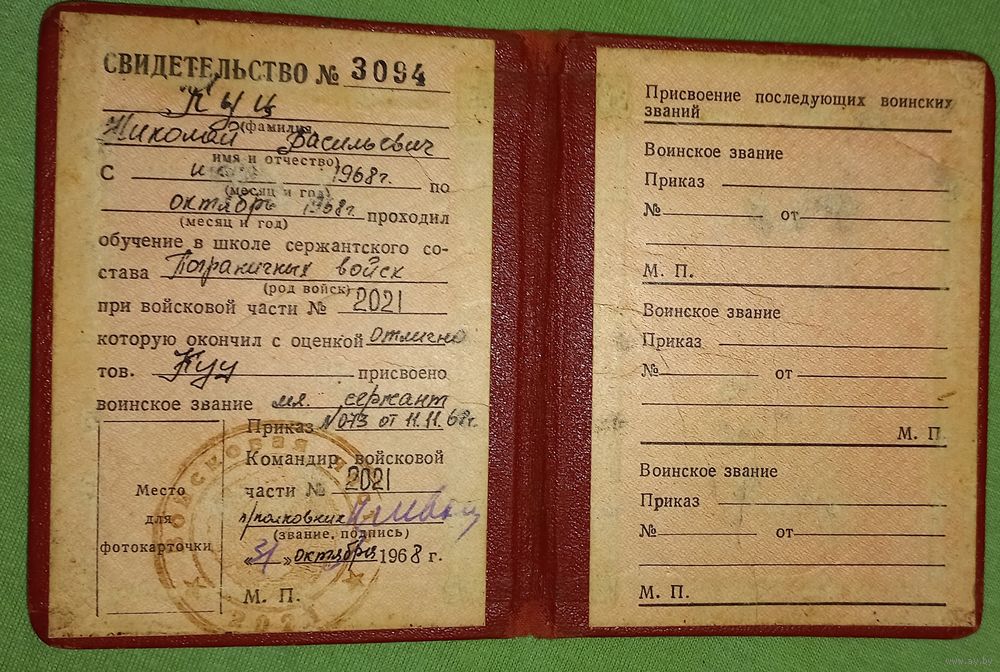 СВИДЕТЕЛЬСТВО № 3094
Куц
(фамилия,
Николай Васильевич
имя и отчество)
С 1968г. по
(месяц и год)
октябрь 1968г. проходил
(месяц и год)
обучение в школе сержантского со-
става Пограничных войск
(род войск)
при войсковой части № 2021
которую окончил с оценкой Отлично
тов. Куц присвоено
воинское звание мл. сержант
Приказ №073 от 11.11.68г.
Командир войсковой
части № 2021
п/полковник
(звание, подпись)
«31» октября 1968 г.
М. П.
Место
для
фотокарточки
ВОЙСКОВАЯ
2021
Присвоение последующих воинских
званий
Воинское звание
Приказ
№ от
М. П.
Воинское звание
Приказ
№ от
М. П.
Воинское звание
Приказ
№ от
М. П.
www.ay.by